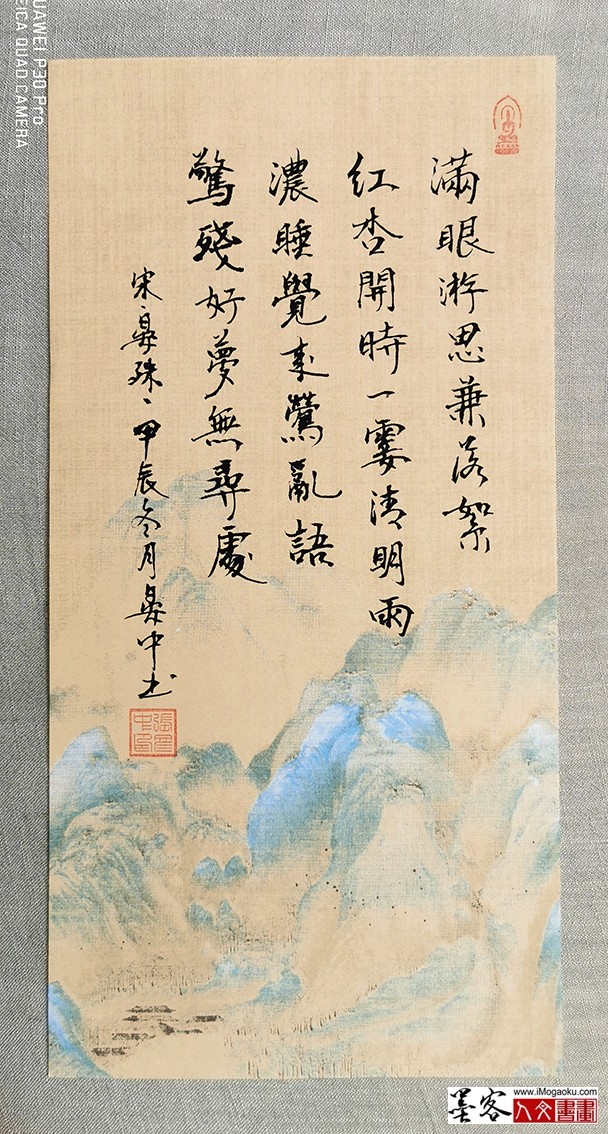 滿眼游思兼落絮
紅杏開時一霎清明雨
濃睡覺来鶯亂語
驚殘好夢無尋處
宋、晏殊、甲辰冬月晏中书
張晏中印
UAWEI P30 Pro
EICA QUAD CAMERA
墨客
www.iMogaoku.com
人文書畫